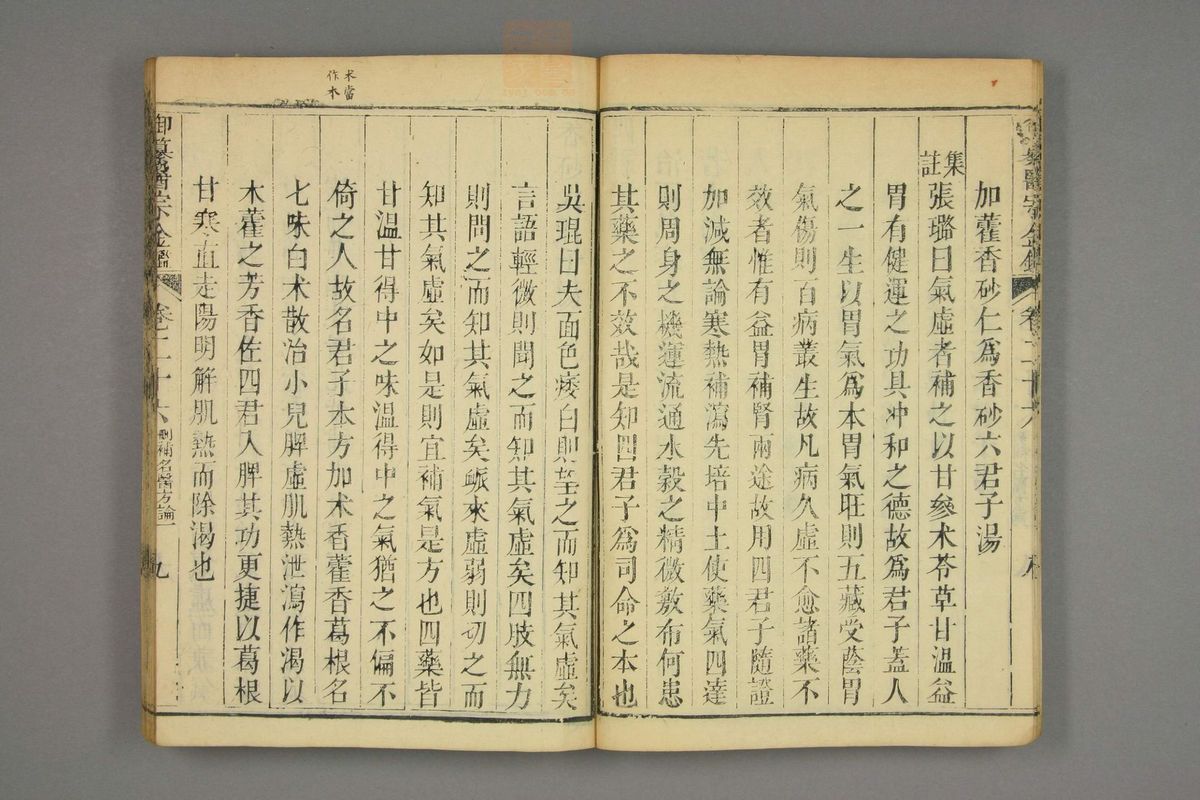 加藿香砂仁爲香砂六君子湯
集註
張璐曰氣虛者補之以甘參术苓草甘溫益
胃有健運之功具冲和之德故爲君子蓋人
之一生以胃氣爲本胃氣旺則五藏受蔭胃
氣傷則百病叢生故凡病久虛不愈諸藥不
效者惟有益胃補腎兩途故用四君子隨證
加減無論寒熱補瀉先培中土使藥氣四達
則周身之機運流通水穀之精微敷布何患
其藥之不效哉是知四君子爲司命之本也
吳琨曰夫面色痿白則望之而知其氣虛矣
言語輕微則聞之而知其氣虛矣四肢無力
則問之而知其氣虛矣脈來虛弱則切之而
知其氣虛矣如是則宜補氣是方也四藥皆
甘溫甘得中之味溫得中之氣猶之不偏不
倚之人故名君子本方加术香藿香葛根名
七味白术散治小兒脾虛肌熱泄瀉作渴以
木藿之芳香佐四君入脾其功更捷以葛根
甘寒直走陽明解肌熱而除渴也
术當
作木
御纂醫宗金鑑
卷二十六
刪補名醫方論一
九
纂醫宗金鑑
卷二十六